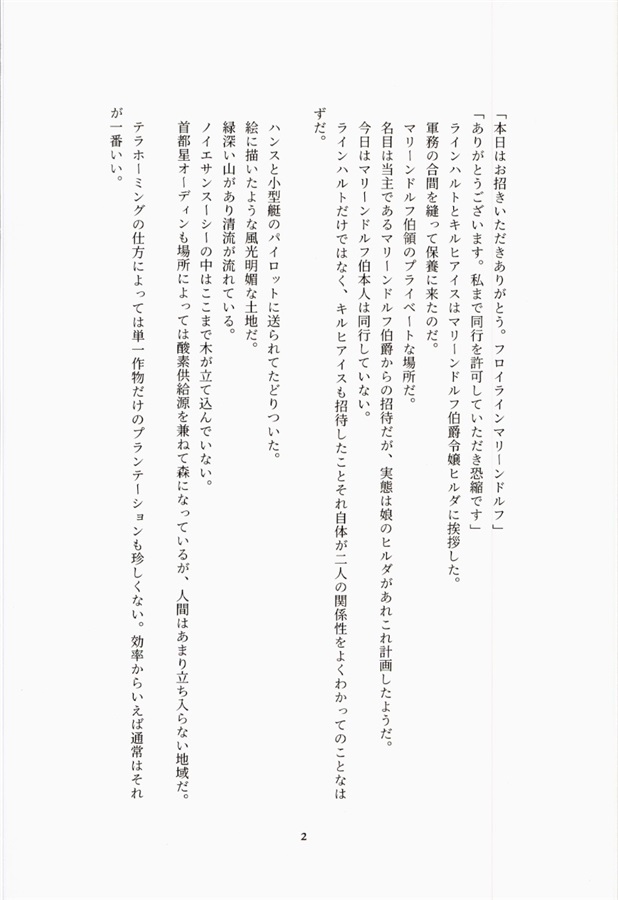 「本日はお招きいただきありがとう。フロイラインマリーンドルフ」
「ありがとうございます。私まで同行を許可していただき恐縮です」
ラインハルトとキルヒアイスはマリーンドルフ伯爵令嬢ヒルダに挨拶した。
軍務の合間を縫って保養に来たのだ。
マリーンドルフ伯領のプライベートな場所だ。
名目は当主であるマリーンドルフ伯爵からの招待だが、実態は娘のヒルダがあれこれ計画したようだ。
今日はマリーンドルフ伯本人は同行していない。
ラインハルトだけではなく、キルヒアイスも招待したことそれ自体が二人の関係性をよくわかってのことなは
ずだ。
ハンスと小型艇のパイロットに送られてたどりついた。
絵に描いたような風光明媚な土地だ。
緑深い山があり清流が流れている。
ノイエサンスーシーの中はここまで木が立て込んでいない。
首都星オーディンも場所によっては酸素供給源を兼ねて森になっているが、人間はあまり立ち入らない地域だ。
テラホーミングの仕方によっては単一作物だけのプランテーションも珍しくない。効率からいえば通常はそれ
が一番いい。
2